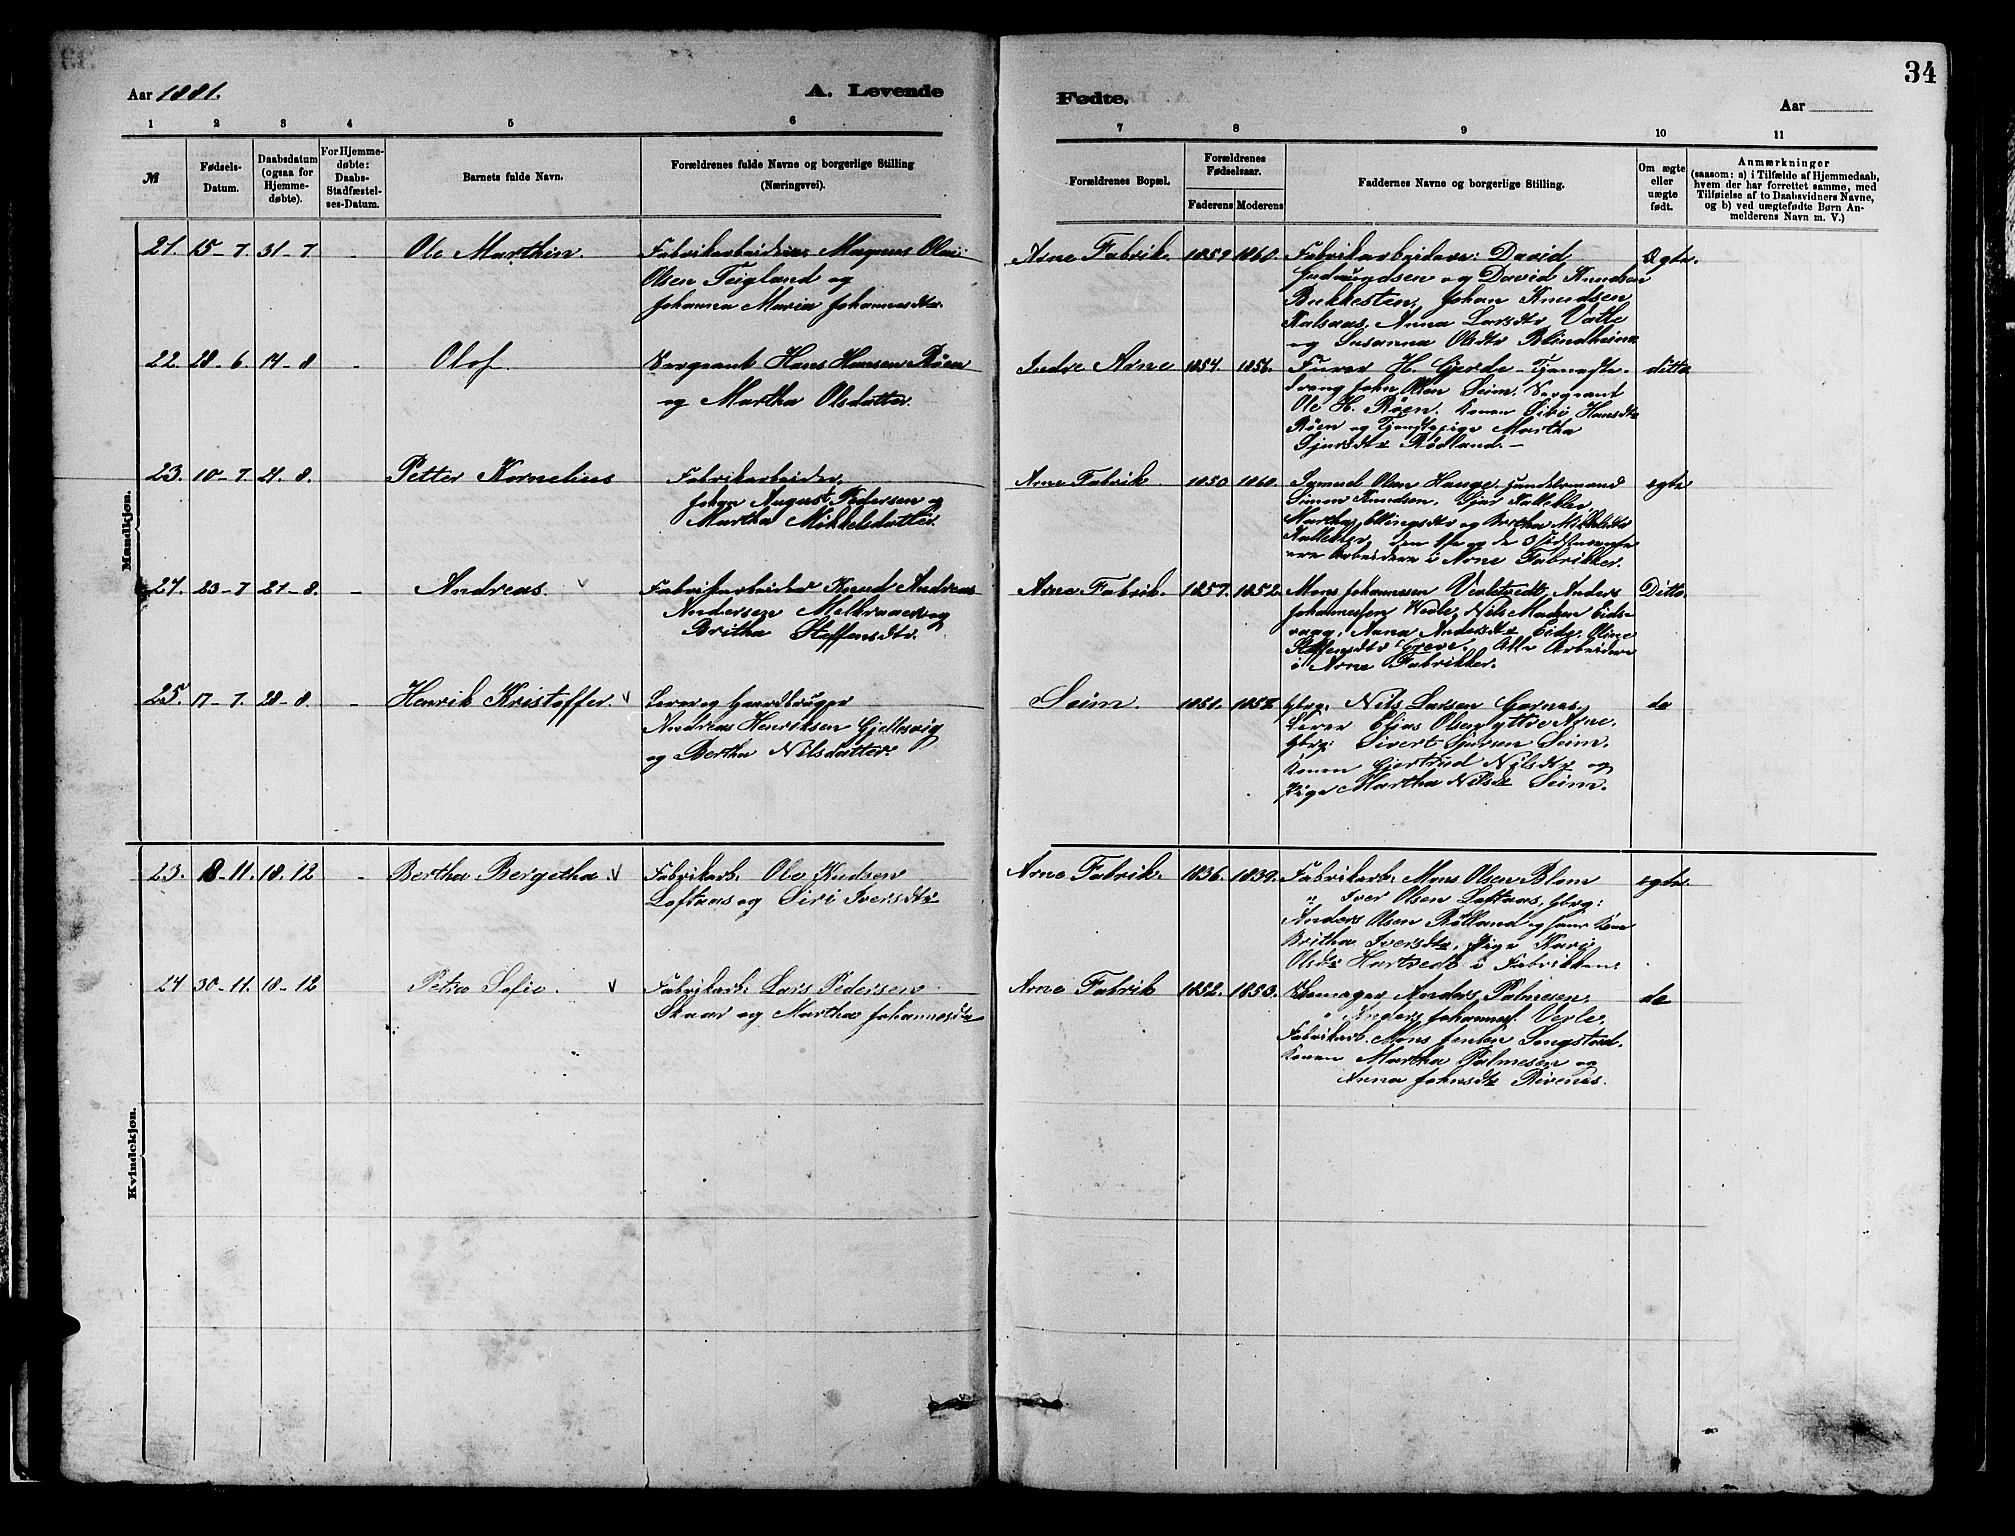 34
Aar 1881.
A. Levende
Fødte.
Aar
1 2 3 4 5 6
7 8 9 10 11
№
Fødsels-Datum.
Daabsdatum (ogsaa for Hjemmedøbte).
For Hjemmedøbte: Daabs-Stadfæstelses-Datum.
Barnets fulde Navn.
Forældrenes fulde Navne og borgerlige Stilling
(Næringsvei).
Forældrenes Bopæl.
Forældrenes Fødselsaar.
Faderens Moderens
Faddernes Navne og borgerlige Stilling.
Om ægte eller uægte født.
Anmærkninger
(saasom: a) i Tilfælde af Hjemmedaab,
hvem der har forrettet samme, med
Tilføielse af to Daabsvidners Navne,
og b) ved uægtefødte Børn Anmelderens Navn m. V.)
Mandkjøn.
21. 15-7. 31-7 - Ole Marthin.
Fabrikarbeider Magnus Olai
Olsen Teigland og
Johanna Maria Johannesdtr.
Arne Fabrik. 1859 1860.
Fabrikarbeidere: David
Gudmundsen og David Knudsen
Bukkesten, Johan Knudsen
Kalsaas, Anna Larsdtr Vatle
og Susanna Olsdtr Blindheim
Ægte.
22. 28-6. 14-8 Olof
Sergeant Hans Hansen Røen
og Martha Olsdatter.
Indre Arne 1854. 1856.
Furer H. Gjerde - Tjeneste-
dreng John Olsen Seim. Sergeant
Ole H. Røen. Konen Hansdtr
Røen og Tjenestepige Martha
Sjursdtr Rødland.-
ditto
23. 10-7. 21-8. - Petter Kornelius
Fabrikarbeider,
Johan August Pedersen og
Martha Mikkelsdatter.
Arne Fabrik 1850 1860.
Samuel Olsen Hauge, Handelsmand
Simon Knudsen, Kallekler,
Martha Ellingsdtr og Bertha Mikkelsdtr
Kallekler, den 1ste og de 3 sidstnævnte
ere Arbeidere i Arne Fabrikker.
egte
24. 23-7 21-8. - Andreas.
Fabrikarbeider Knud Andreas
Andersen Melkeraaen og
Britha Steffensdtr.
Arne Fabrik. 1857. 1852.
Mons Johannessen Anders
Johannessen Vevle, Nils Madsen Eids-
vaag, Anna Andersdtr Eide, Oline
Steffensdtr Greve. Alle Arbeidere
i Arne Fabrikker.
Ditto.
25. 17-7. 28-8. - Henrik Kristoffer.
Lærer og Gaardbruger
Andreas Henriksen Gjellesvig
og Bertha Nilsdatter.
Seim. 1851. 1852
Gbrg. Nils Larsen Garnes,
Lærer Elias Olsen yttre Arne.
Gbrg: Sivert Sjursen Seim.
Konen Gjertrud Nilsdtr og
Pige Martha Nilsdtr Seim.
do
Kvindekjøn.
23. 8-11. 18.12 - Bertha Bergitha.
Fabrikarb. Ole Knudsen
Loftaas og Siri Iversdtr
Arne Fabrik. 1836. 1839.
Fabrikarb. Mons Olsen Blom
" Iver Olsen Loftaas, Gbrg:
Anders Olsen Rølland og hans Kone
Britha Iversdtr. Pige Kari
Olsdtr Hartvedt i Fabrikken
egte.
24 30-11. 18-12 Petra Sofie.
Fabrikarb. Lars Pedersen
Skaar og Martha Johannesdtr
Arne Fabrik 1852. 1853.
Skomager Anders Palmesen,
" Anders Johannes. Vevle.
Fabrikarb. Mons Jensen Songstad.
Konen Martha Palmesen og
Anna Johnsdtr Rivenes.
do